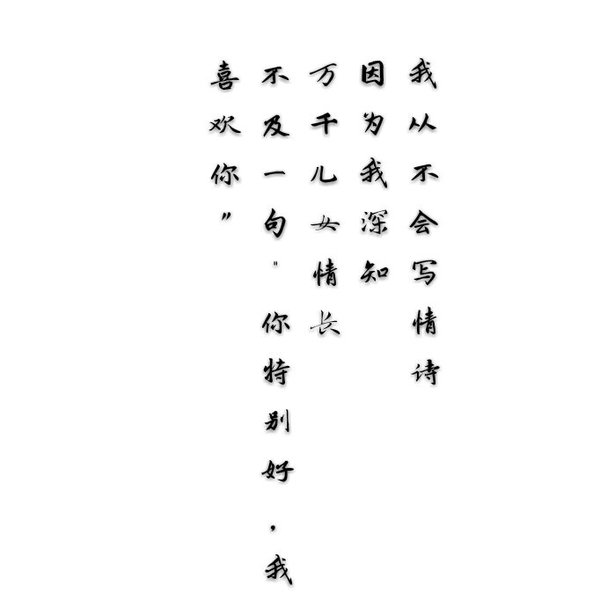 我从不会写情诗
因为我深知
万千儿女情长
不及一句"你特别好，我
喜欢你"